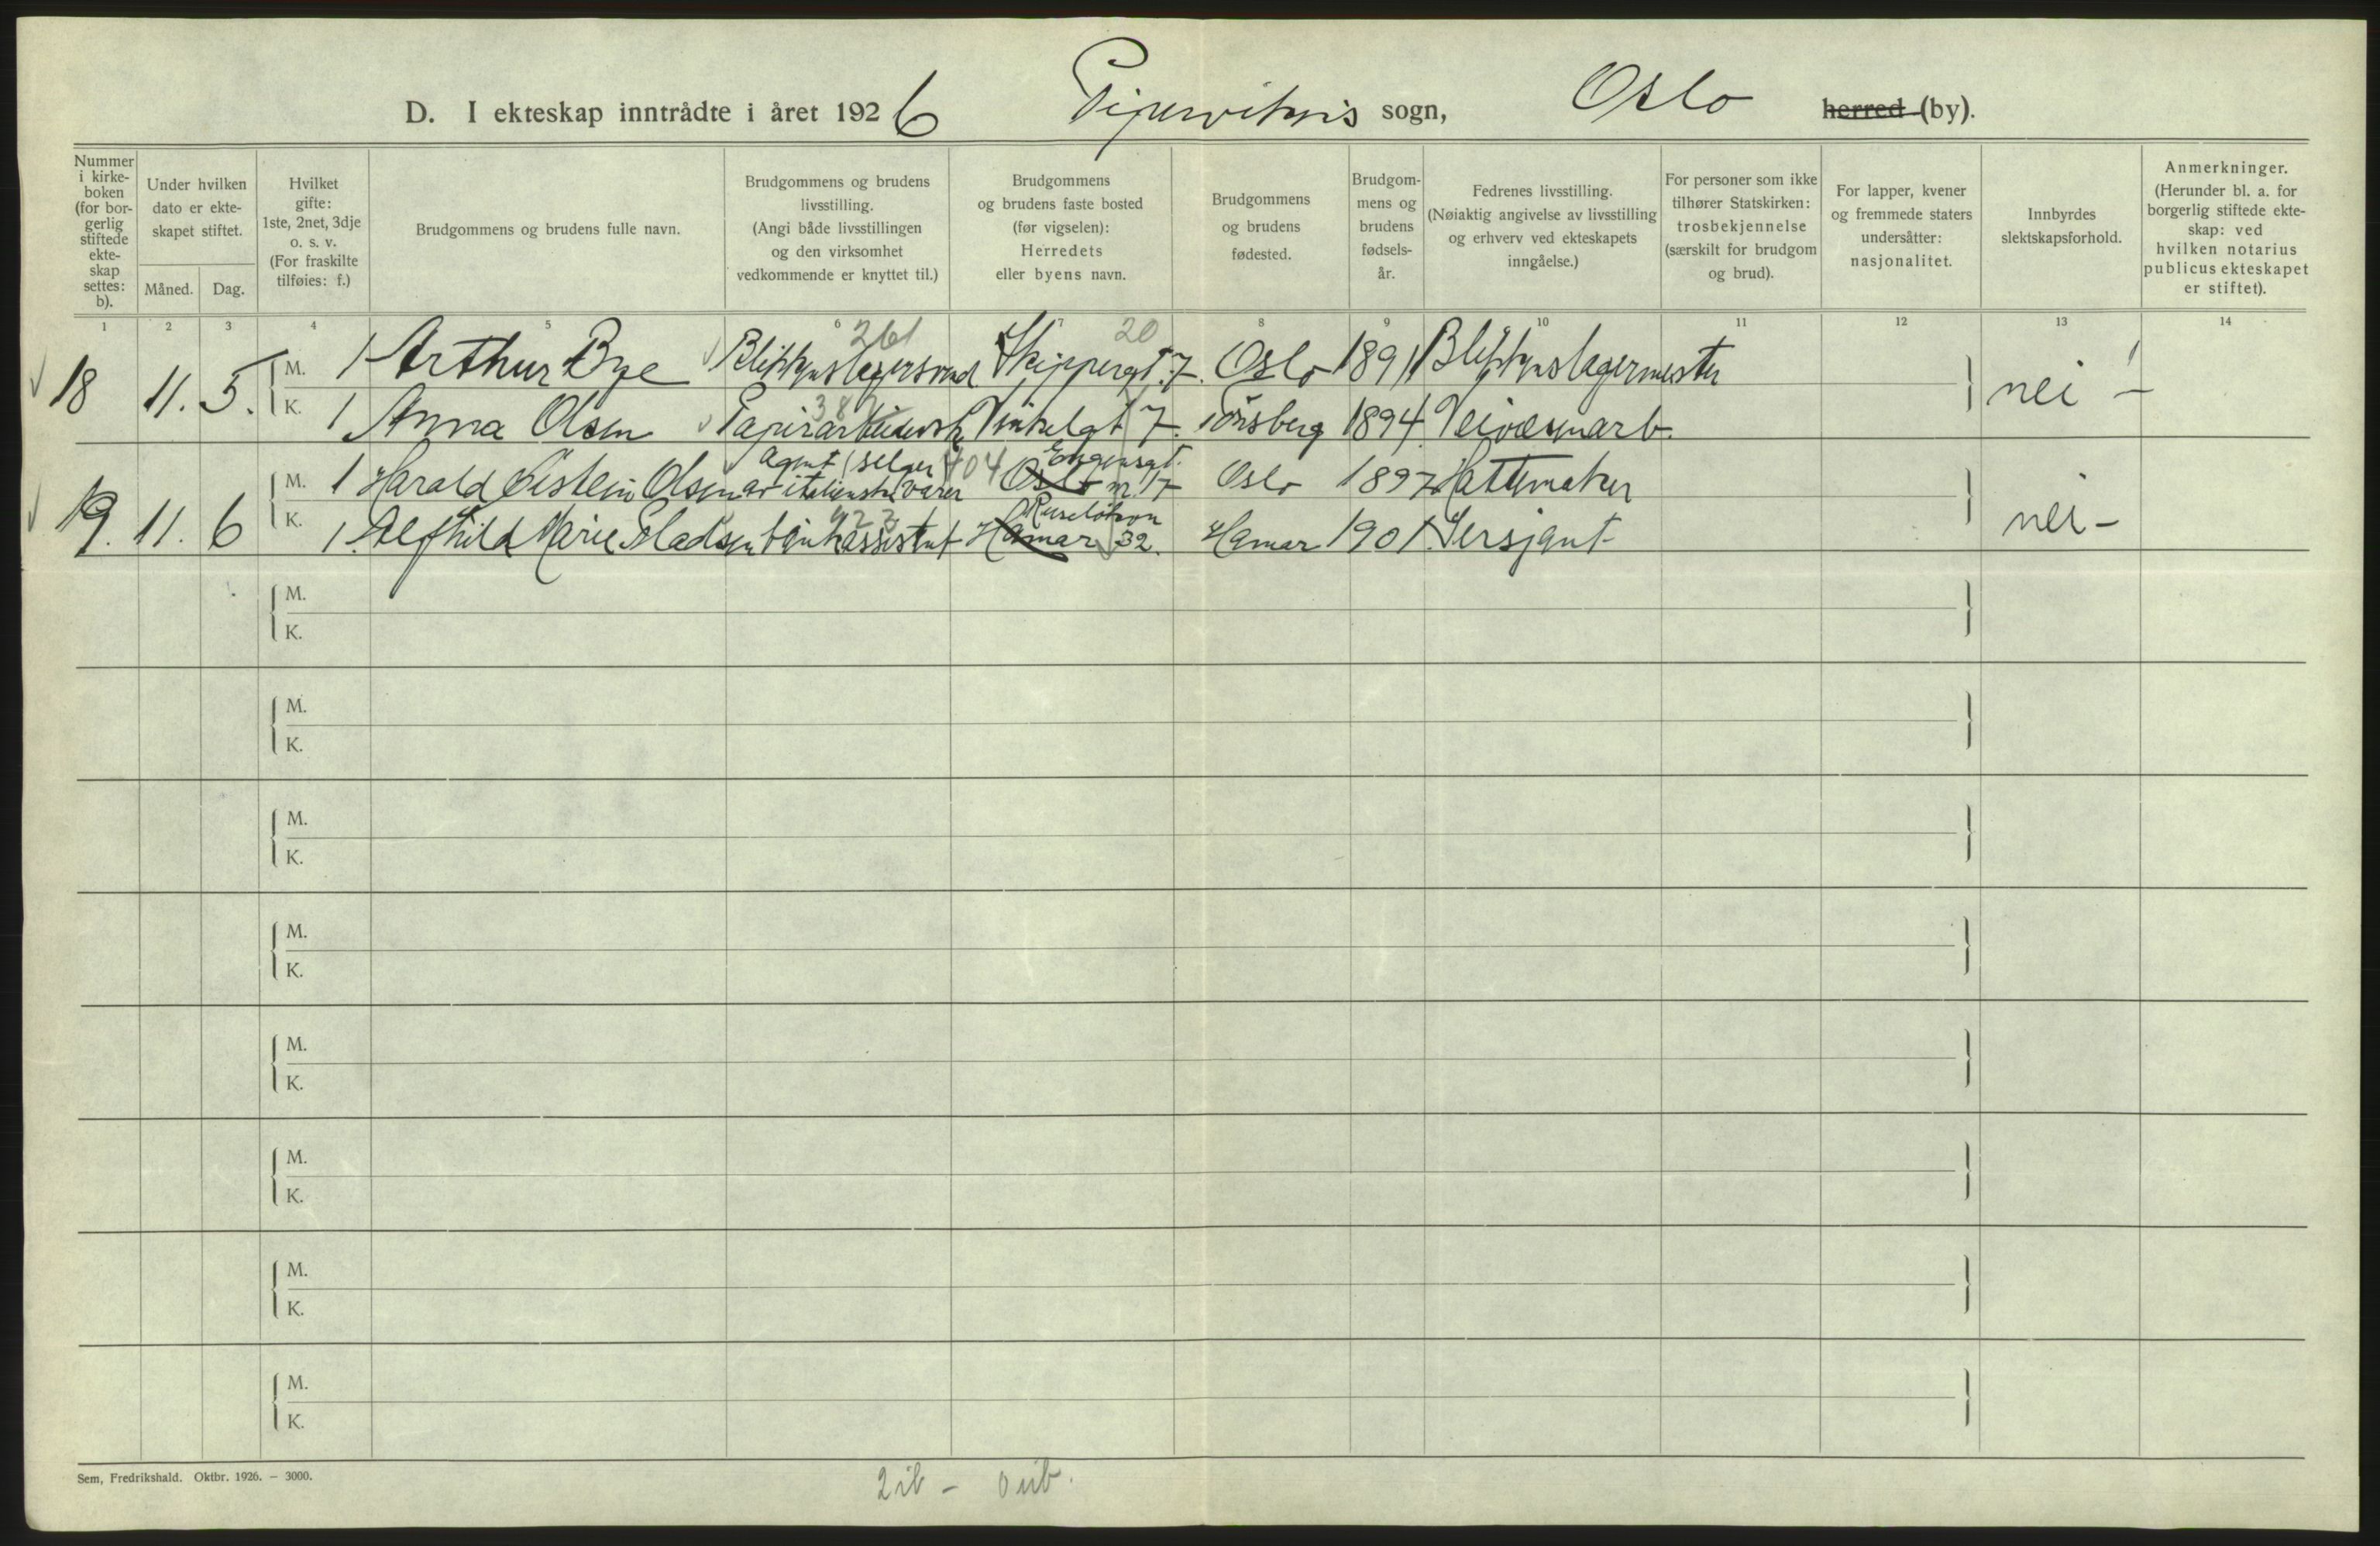 D. I ekteskap inntrådte i året 1926 Pipervikens sogn, Oslo herred (by).
Nummer i kirkeboken (for borgerlig stiftede ekteskap settes: b).
Under hvilken dato er ekteskapet stiftet.
Måned. Dag.
Hvilket gifte: 1ste, 2net, 3dje o. s. v. (For fraskilte tilføies: f.)
Brudgommens og brudens fulle navn.
Brudgommens og brudens livsstilling. (Angi både livsstillingen og den virksomhet vedkommende er knyttet til.)
Brudgommens og brudens faste bosted (før vigselen): Herredets eller byens navn.
Brudgommens og brudens fødested.
Brudgommens og brudens fødselsår.
Fedrenes livsstilling. (Nøiaktig angivelse av livsstilling og erhverv ved ekteskapets inngåelse.)
For personer som ikke tilhører Statskirken: trosbekjennelse (særskilt for brudgom og brud).
For lapper, kvener og fremmede staters undersåtter: nasjonalitet.
Innbyrdes slektskapsforhold.
Anmerkninger. (Herunder bl. a. for borgerlig stiftede ekteskap: ved hvilken notarius publicus ekteskapet er stiftet).
1 2 3 4 5 6 7 8 9 10 11 12 13 14
261 20
18 11. 5. M. 1 Arthur Bye Blikkenslagersvend Skippergt. 7. Oslo 1891 Blikkenslagermester nei -
K. 1 Anna Olsen Papirarbeiderske Vinkelgt 7. Tönsberg 1894 Veivesenarb.
Agent (selger 404 Engensgt.
19. 11. 6 M. 1 Harald Øistein Olsen av italienske varer Oslo nr. 17 Oslo 1897 Hattemaker nei -
Ruseløkvn
K. 1. Alfhild Marie Gladsen bankassistent Hamar 32. Hamar 1901 Sersjant
M.
K.
M.
K.
M.
K.
M.
K.
M.
K.
M.
K.
M.
K.
M.
K.
Sem, Fredrikshald. Oktbr. 1926. — 3000.
2 ib - 0 uib.